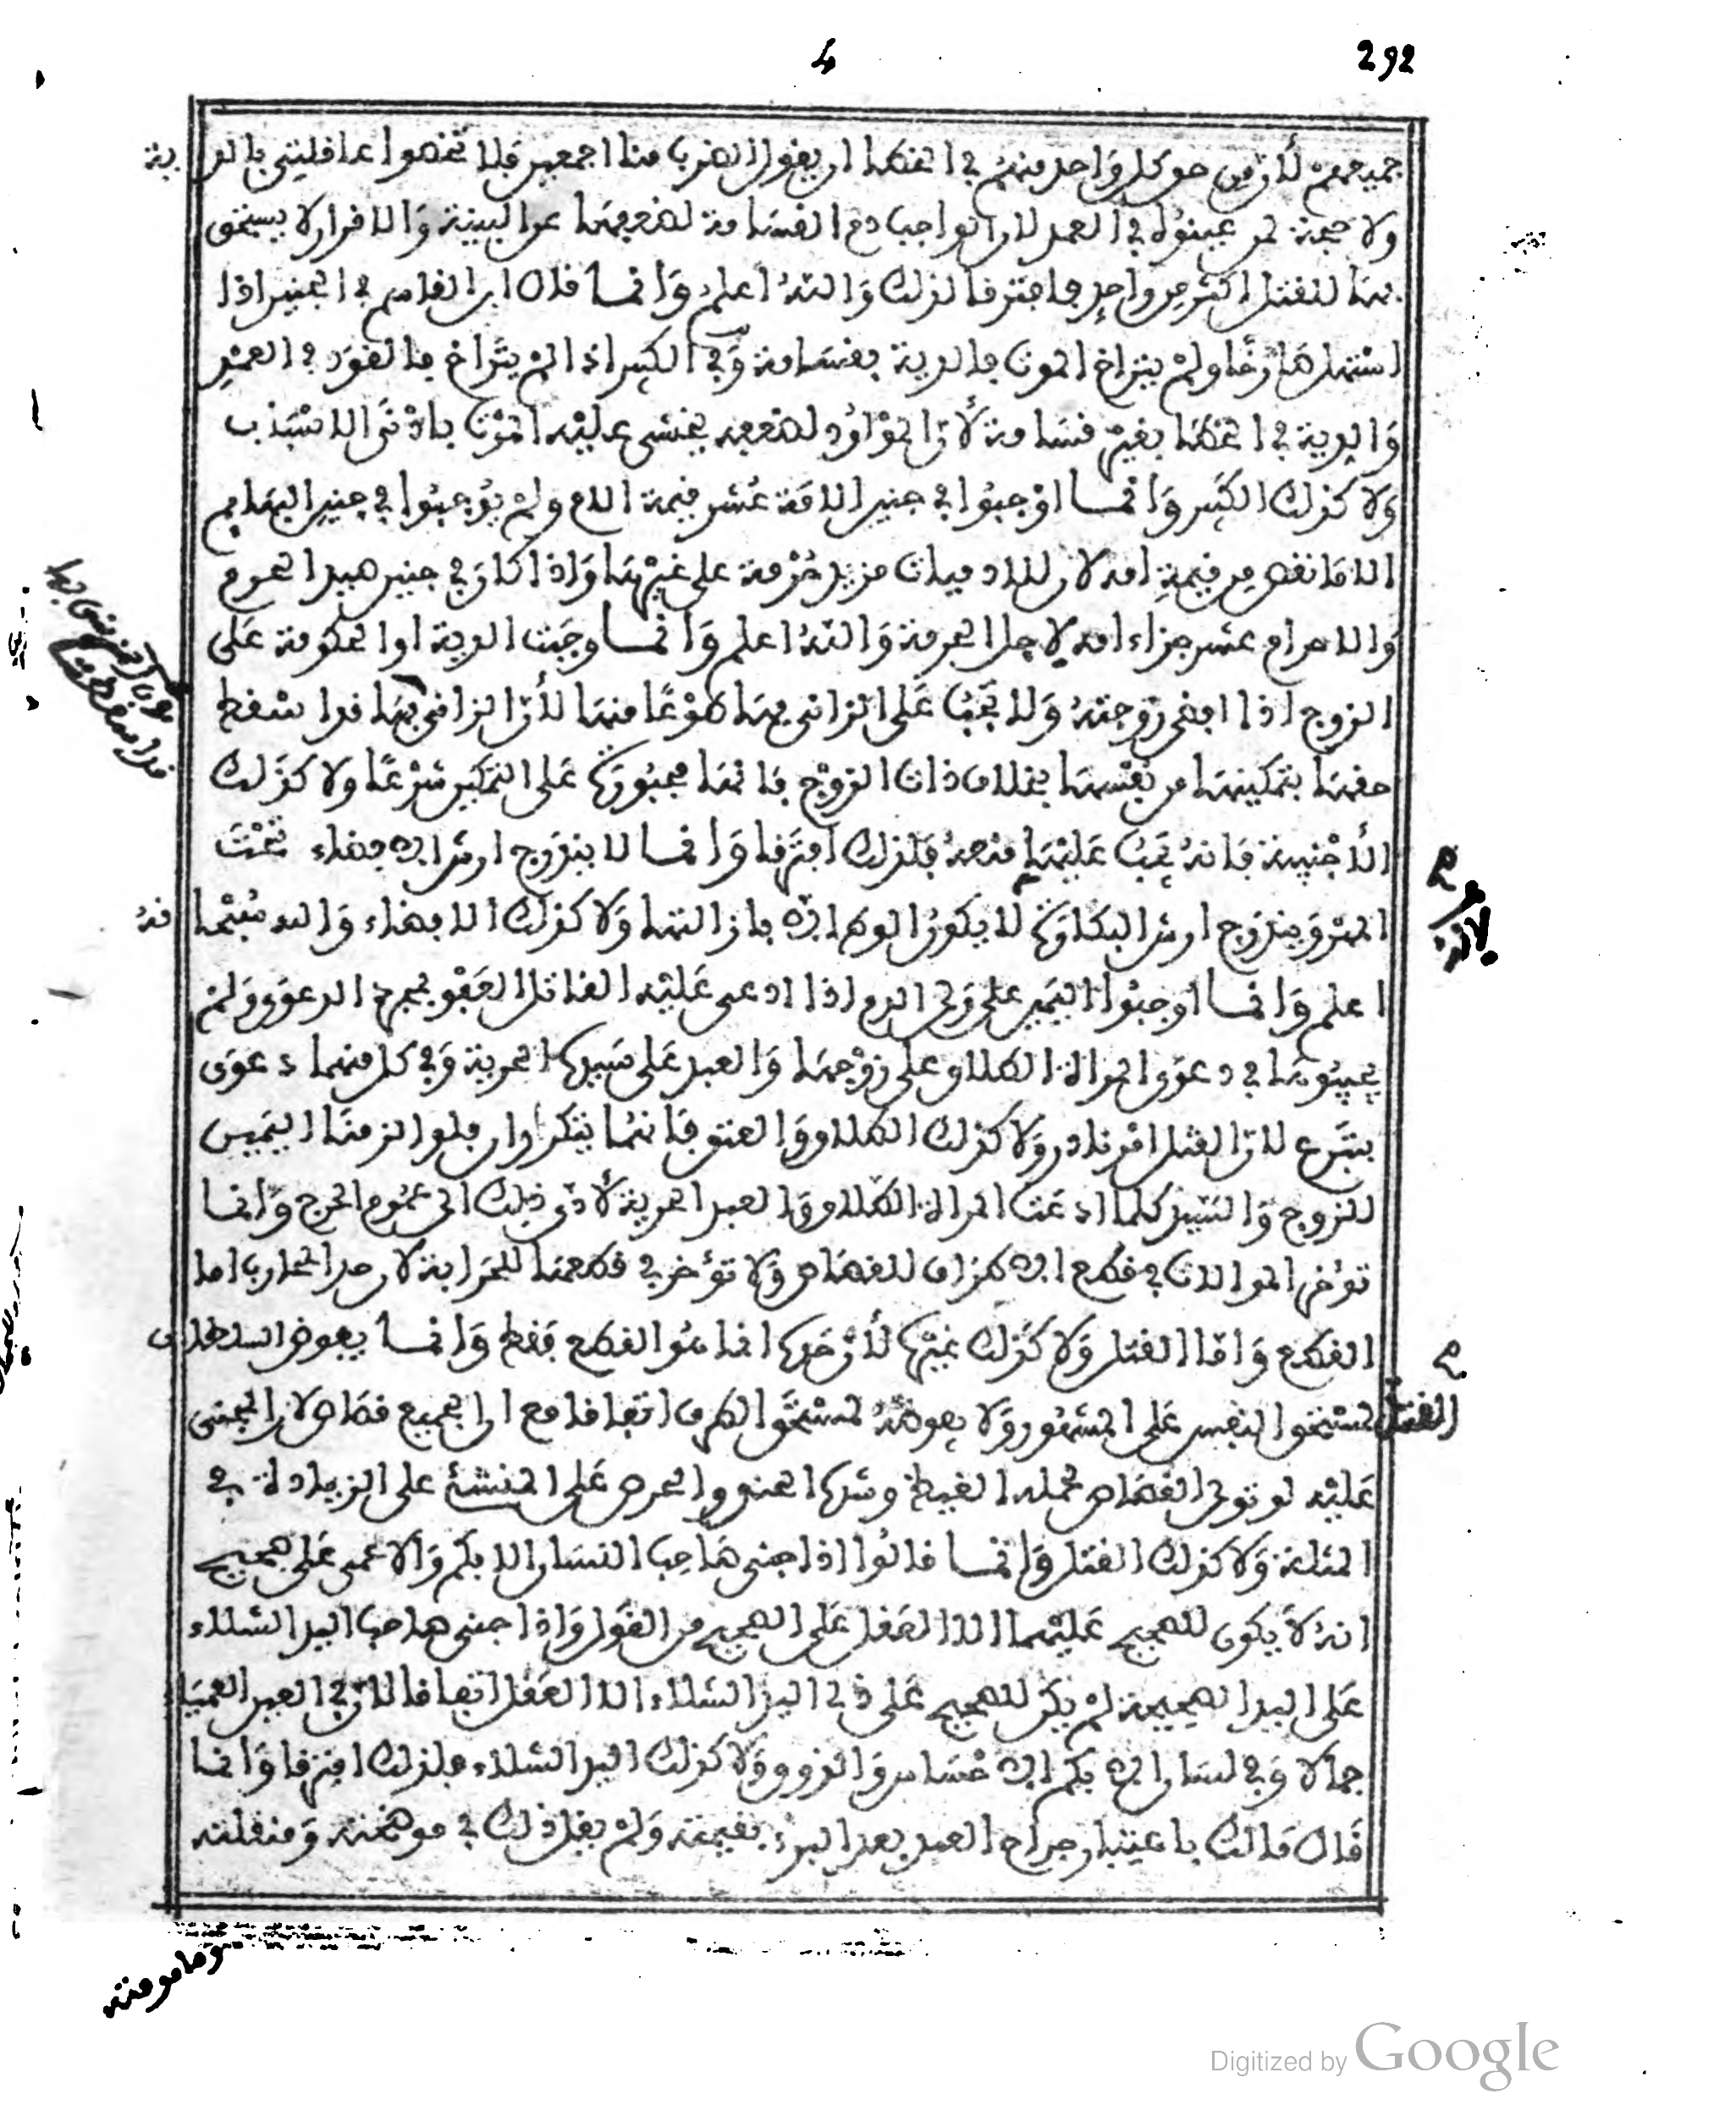 292
4
جميعهم لأن من حق كل واحد منهم في الخطإ أن يقول الضرب منا اجمعين فلا تخصوا عاقلتي بالدية
ولا حجة لمن عينوه في العمد لان الواجب دم القسامة لضعفها عن البينة والاقرار لا يستحق
بها للقتل اكثر من واحد فافترقا لذلك والله أعلم وانما قال ابن القاسم في الجنين اذا
استهل صارخا ولم يتراخ الموت فالدية بقسامة وفي الكبير اذا لم يتراخ فالقود في العمد
والدية في الخطإ بغير قسامة لأن المولود لضعفه يخشى عليه الموت بادنى الاسباب
ولا كذلك الكبير وانما اوجبوا في جنين الامة عشر قيمة الام ولم يوجبوا في جنين البهايم
الا ما نقص من قيمة امه لان للادميات مزيد حرمة على غيرها واذا كان في جنين صيد الحرم
والاحرام عشر جزاء امه لاجل الحرمة والله اعلم وانما وجبت الدية او الحكومة على
الزوج اذا افضى زوجته ولا تجب على الزاني بها طوعا منها لأن الزاني بها قد اسقط
حقها بتمكينها من نفسها بخلاف ذات الزوج فانها مجبورة على التمكين شرعا ولا كذلك
الأجنبية فانه يجب عليها منعه فلذلك افترقا وانما لا يندرج ارش الافضاء تحت
المهر ويندرج ارش البكارة لا يكون الوطء الا بازالتها ولا كذلك الافضاء والله سبحانه
اعلم وانما أوجبوا اليمين على ولي الدم اذا ادعى عليه القاتل العفو بمجرد الدعوى ولم
يجيبوها في دعوى المراة الطلاق على زوجها والعبد على سيده الحرية وفي كل منهما دعوى
بتبرع لان القتل امر نادر ولا كذلك الطلاق والعتق فانهما يتكرران فلو الزمنا اليمين
للزوج والسيد كلما ادعت المراة الطلاق والعبد الحرية لأدى ذلك الى عموم الحرج وانما
تؤخر الموالات في قطع الاطراف للقصاص ولا تؤخر في قطعها للحرابة لان حد المحارب اما
القطع واما القتل ولا كذلك غيره لأن حده انما هو القطع فقط وانما يفوض السلطان
القتل لمستحق النفس على المشهور ولا يفوضه لمستحق الطرف اتفاقا مع ان الجميع قصاص لان المجني
عليه لو تولى القصاص لحمله الغيظ وشدة الحنق والحرص على المنشئ على الزيادة في
المثلة ولا كذلك القتل وانما قالوا اذا جنى صاحب اللسان الابكم والاعمى على صحيح
انه لا يكون للصحيح عليهما الا العقل على الصحيح من القول واذا جنى صاحب اليد الشلاء
على اليد الصحيحة لم يكن للصحيح على ذي اليد الشلاء الا العقل اتفاقا لان في العين العمياء
جمالا وفي لسان الابكم الاحساس والذوق ولا كذلك اليد الشلاء فلذلك افترقا وانما
قال مالك باعتبار جراح العبد بعد البرء بقيمته ولم يقل ذلك في موضحته ومنقلته
ومامومته